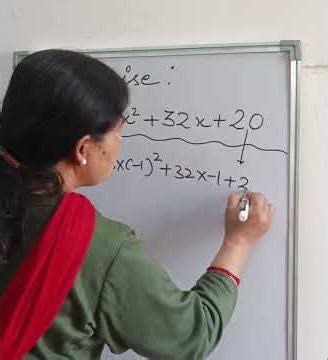 ise :
x² + 32x + 20
x(-1)² + 32x-1 + 2